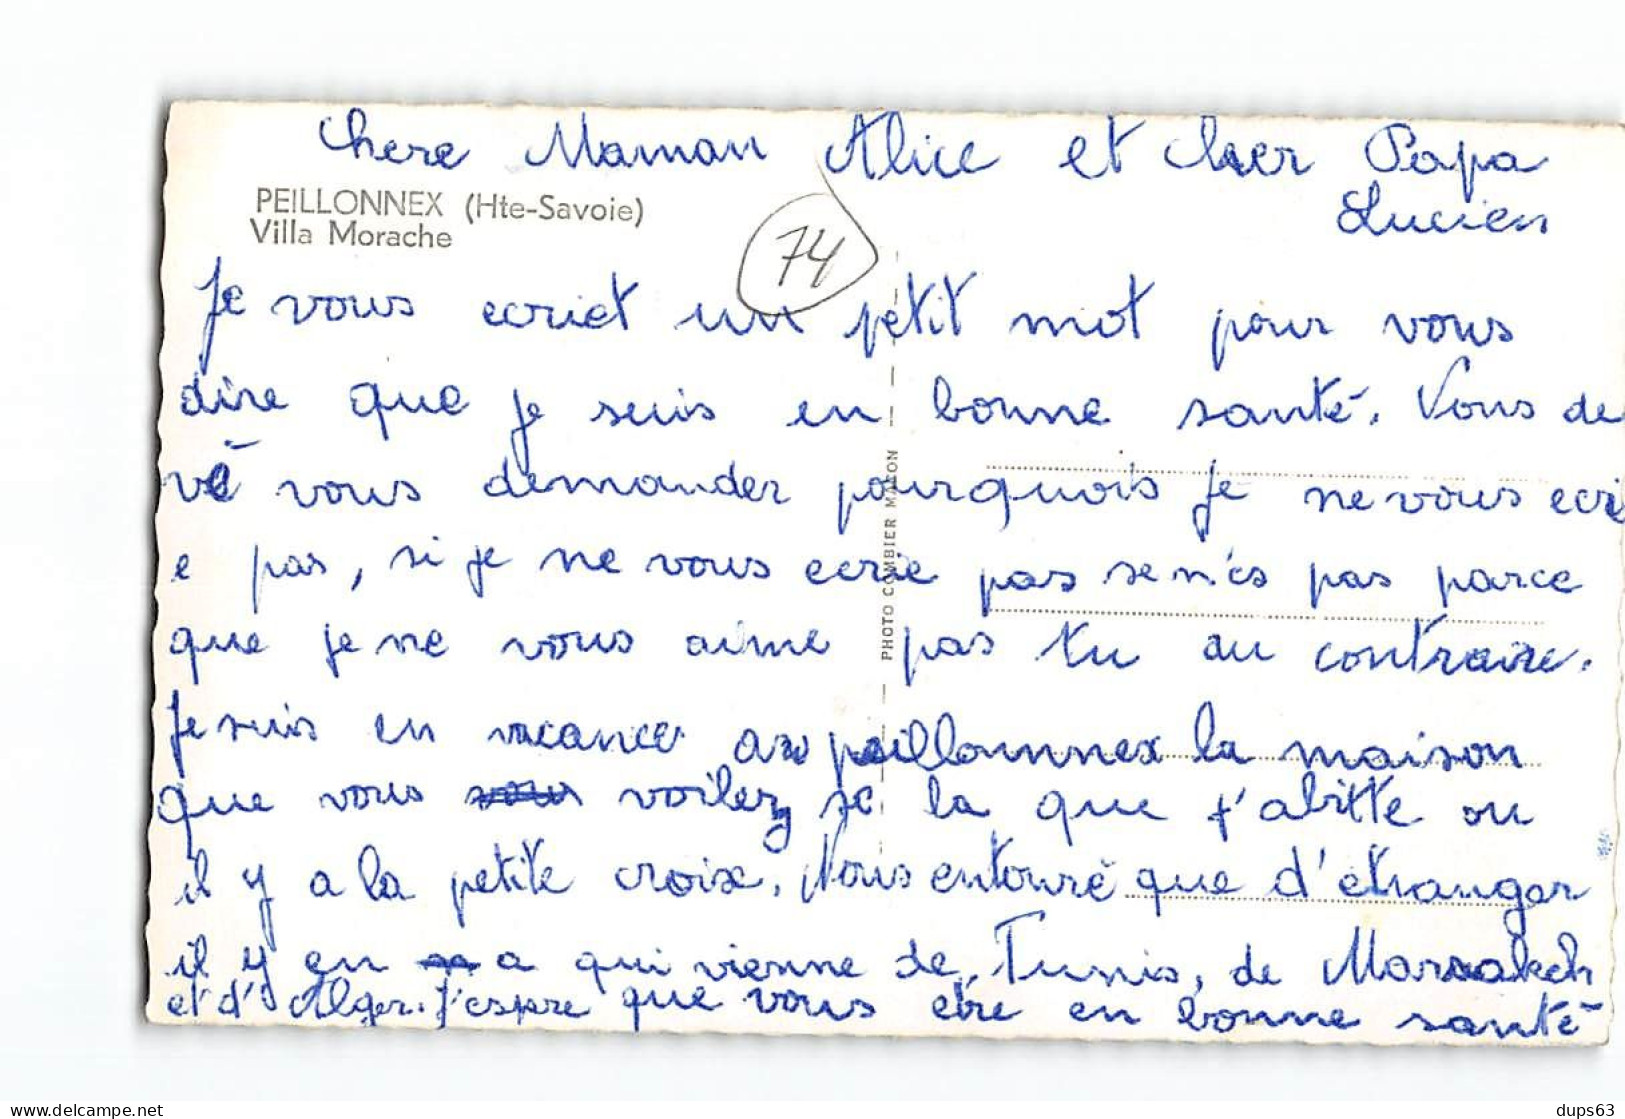 chere Maman Alice et cher Papa
Lucien
PEILLONNEX (Hte-Savoie)
Villa Morache
74
Je vous ecriet un petit mot pour vous
dire que je suis en bonne santé. Vous de
vé vous demander pourquois je ne vous ecri
e pas, si je ne vous ecrie pas se n'es pas parce
que je ne vous aime pas tu au contraire.
Je suis en vacance a peillonnex la maison
que vous voilez se la que j'abitte ou
il y a la petite croix. Nous entouré que d'étranger
il y en a qui vienne de Tunis, de Marrakech
et d'Alger. J'espere que vous etre en bonne santé
PHOTO COMBIER MACON
https://www.delcampe.net
dups63